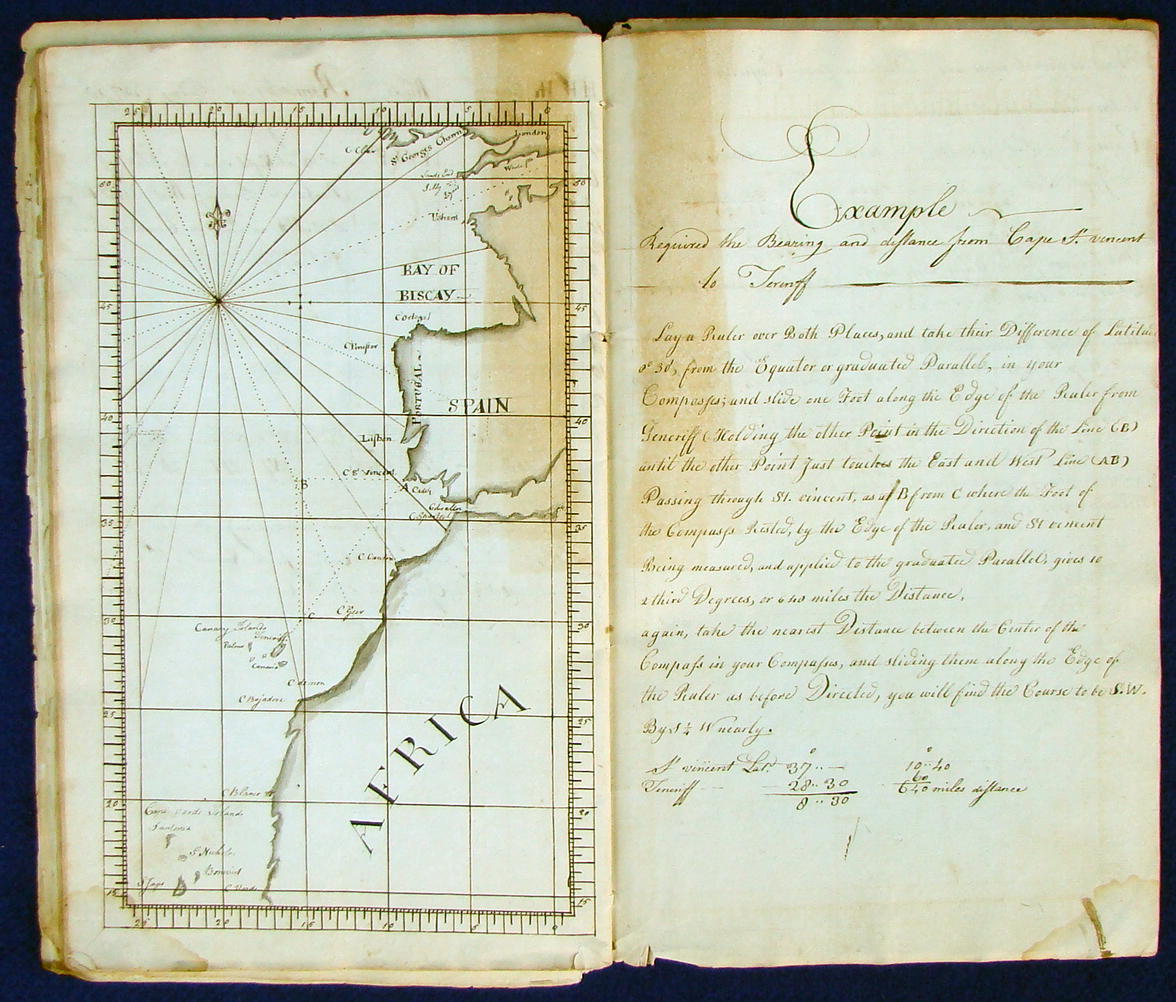 25 20 15 10 5 0
C Clear
St Georges Chann
London
Lands End
Silly
50
50
Ushant
BAY OF
BISCAY
45
45
C Ortegal
C Finister
PORTUGAL
SPAIN
40
40
Lisbon
C St Vincent
B
A
Cadiz
Gibralter
C Spartel
35
35
C Cantin
C
C Geer
30
30
Canary Islands
Teneriff
Palma
Canaria
C de non
C Bojadore
25
25
AFRICA
C Blanco
20
20
Cape Verds Islands
St Nichols
Bonavist
St Jago
C Verde
15
15
25 20 15 10 5 0
Example
Required the Bearing and distance from Cape St. Vincent
to Teneriff
Lay a Ruler over Both Places, and take their Difference of Latitude
8° 30, from the Equator or graduated Parallel, in your
Compasses; and slide one Foot along the Edge of the Ruler from
Teneriff (Holding the other Point in the Direction of the Line CB)
until the other Point Just touches the East and West Line (AB)
Passing through St. Vincent, as at B from C where the Foot of
the Compass Rested, by the Edge of the Ruler, and St Vincent
Being measured, and applied to the graduated Parallel, gives 10
2 third Degrees, or 640 miles the Distance.
again, take the nearest Distance between the Center of the
Compass in your Compasses, and sliding them along the Edge of
the Ruler as before Directed, you will find the Course to be S.W.
By S ¼ W nearly.
St Vincent Lat. 37°..— 10°..40
Teneriff — 28..30 60
8..30 640 miles distance